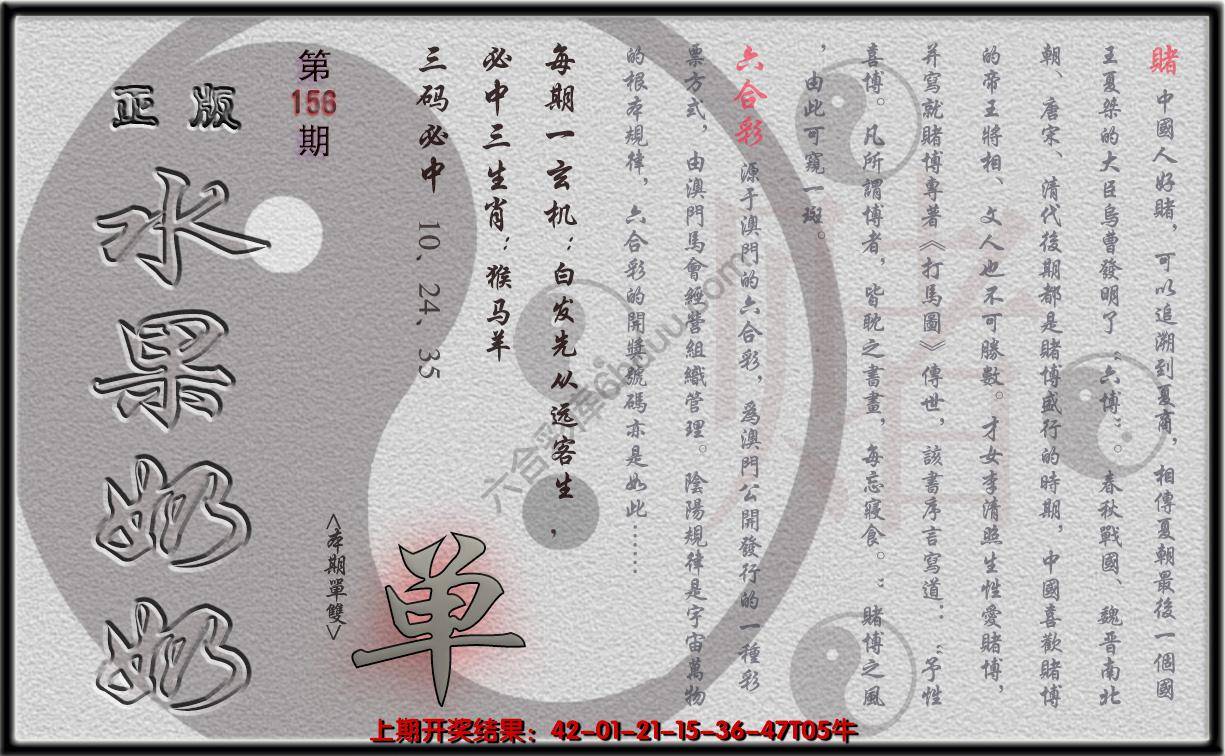 賭 中國人好賭，可以追溯到夏商，相傳夏朝最後一個國
王夏桀的大臣烏曹發明了“六博”。春秋戰國、魏晋南北
朝、唐宋、清代後期都是賭博盛行的時期，中國喜歡賭博
的帝王將相、文人也不可勝數。才女李清照生性愛賭博，
并寫就賭博專著《打馬圖》傳世，該書序言寫道：“予性
喜博。凡所謂博者，皆耽之書畫，每忘寢食。”賭博之風
，由此可窺一斑。
六合彩 源于澳門的六合彩，爲澳門公開發行的一種彩
票方式，由澳門馬會經營組織管理。陰陽規律是宇宙萬物
的根本規律，六合彩的開獎號碼亦是如此……
每期一玄机：白发先从远客生，
必中三生肖：猴马羊
三码必中 10、24、35
第
156
期
正版
水果奶奶
<本期單雙>
单
賭
六合彩库6huuu.com
上期开奖结果：42-01-21-15-36-47T05牛